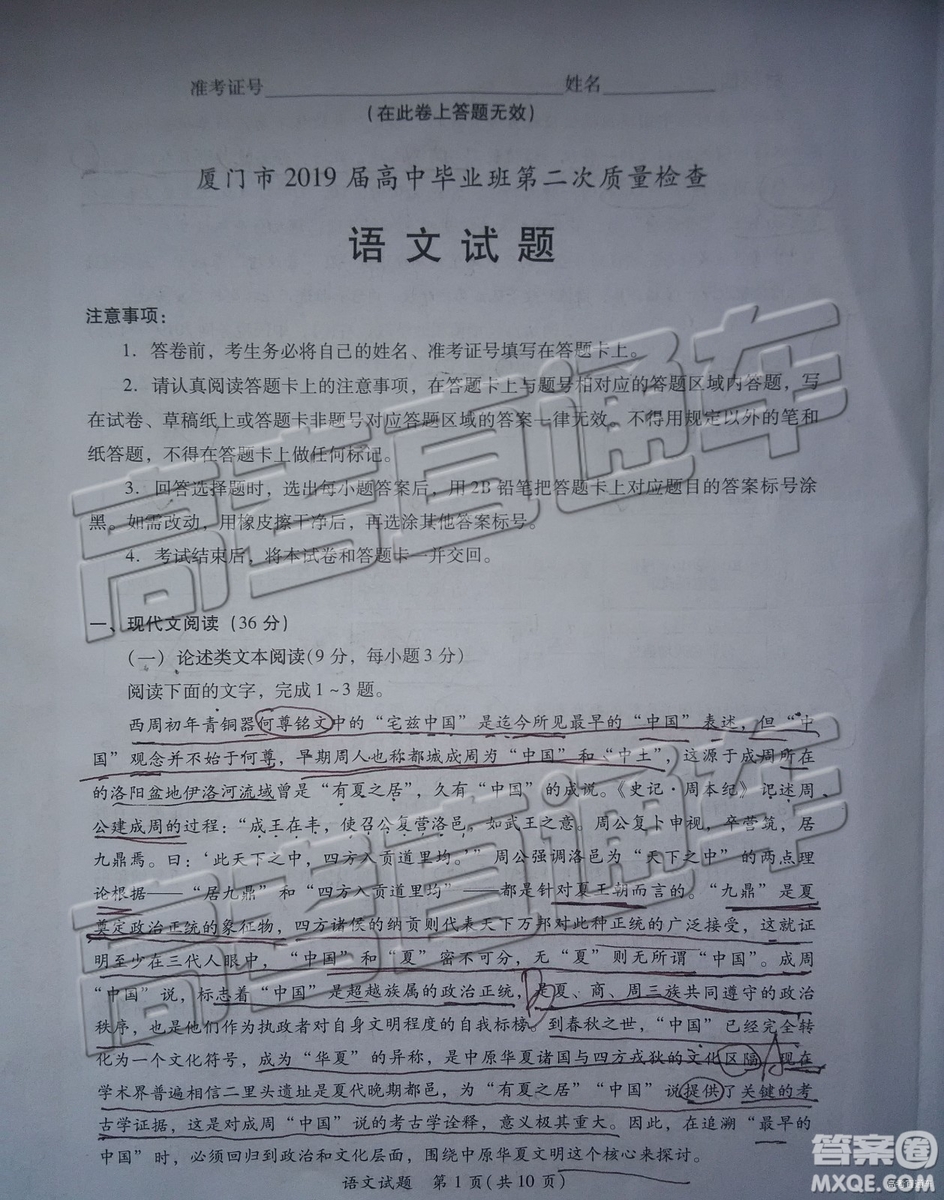 准考证号 姓名
(在此卷上答题无效)
厦门市 2019 届高中毕业班第二次质量检查
语文试题
注意事项：
1. 答卷前，考生务必将自己的姓名、准考证号填写在答题卡上。
2. 请认真阅读答题卡上的注意事项，在答题卡上与题号相对应的答题区域内答题，写
在试卷、草稿纸上或答题卡非题号对应答题区域的答案一律无效。不得用规定以外的笔和
纸答题，不得在答题卡上做任何标记。
3. 回答选择题时，选出每小题答案后，用 2B 铅笔把答题卡上对应题目的答案标号涂
黑。如需改动，用橡皮擦干净后，再选涂其他答案标号。
4. 考试结束后，将本试卷和答题卡一并交回。
一、现代文阅读（36 分）
（一）论述类文本阅读（9 分，每小题 3 分）
阅读下面的文字，完成 1~3 题。
西周初年青铜器何尊铭文中的“宅兹中国”是迄今所见最早的“中国”表述，但“中
国”观念并不始于何尊，早期周人也称都城成周为“中国”和“中土”，这源于成周所在
的洛阳盆地伊洛河流域曾是“有夏之居”，久有“中国”的成说。《史记·周本纪》记述周
公建成周的过程：“成王在丰，使召公复营洛邑，如武王之意。周公复卜申视，卒营筑，居
九鼎焉。曰：‘此天下之中，四方入贡道里均。’”周公强调洛邑为“天下之中”的两点理
论根据——“居九鼎”和“四方入贡道里均”——都是针对夏王朝而言的。“九鼎”是夏
奠定政治正统的象征物，四方诸侯的纳贡则代表天下万邦对此种正统的广泛接受，这就证
明至少在三代人眼中，“中国”和“夏”密不可分，无“夏”则无所谓“中国”。成周
“中国”说，标志着“中国”是超越族属的政治正统，是夏、商、周三族共同遵守的政治
秩序，也是他们作为执政者对自身文明程度的自我标榜。到春秋之世，“中国”已经完全转
化为一个文化符号，成为“华夏”的异称，是中原华夏诸国与四方戎狄的文化区隔。现在
学术界普遍相信二里头遗址是夏代晚期都邑，为“有夏之居”“中国”说提供了关键的考
古学证据，这是对成周“中国”说的考古学诠释，意义极其重大。因此，在追溯“最早的
中国”时，必须回归到政治和文化层面，围绕中原华夏文明这个核心来探讨。
语文试题 第 1 页(共 10 页)
高考直通车
高考直通车
答案圈
MXQE.COM